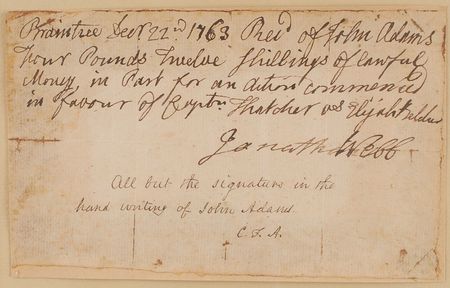 Braintree Decr 22nd 1763 Recd of John Adams
Four Pounds Twelve Shillings of lawful
Money, in Part for an Action commenced
in favour of Captn Thatcher vs Elijah Belcher
Jonathan Webb
All but the signature in the
hand writing of John Adams.
C. F. A.